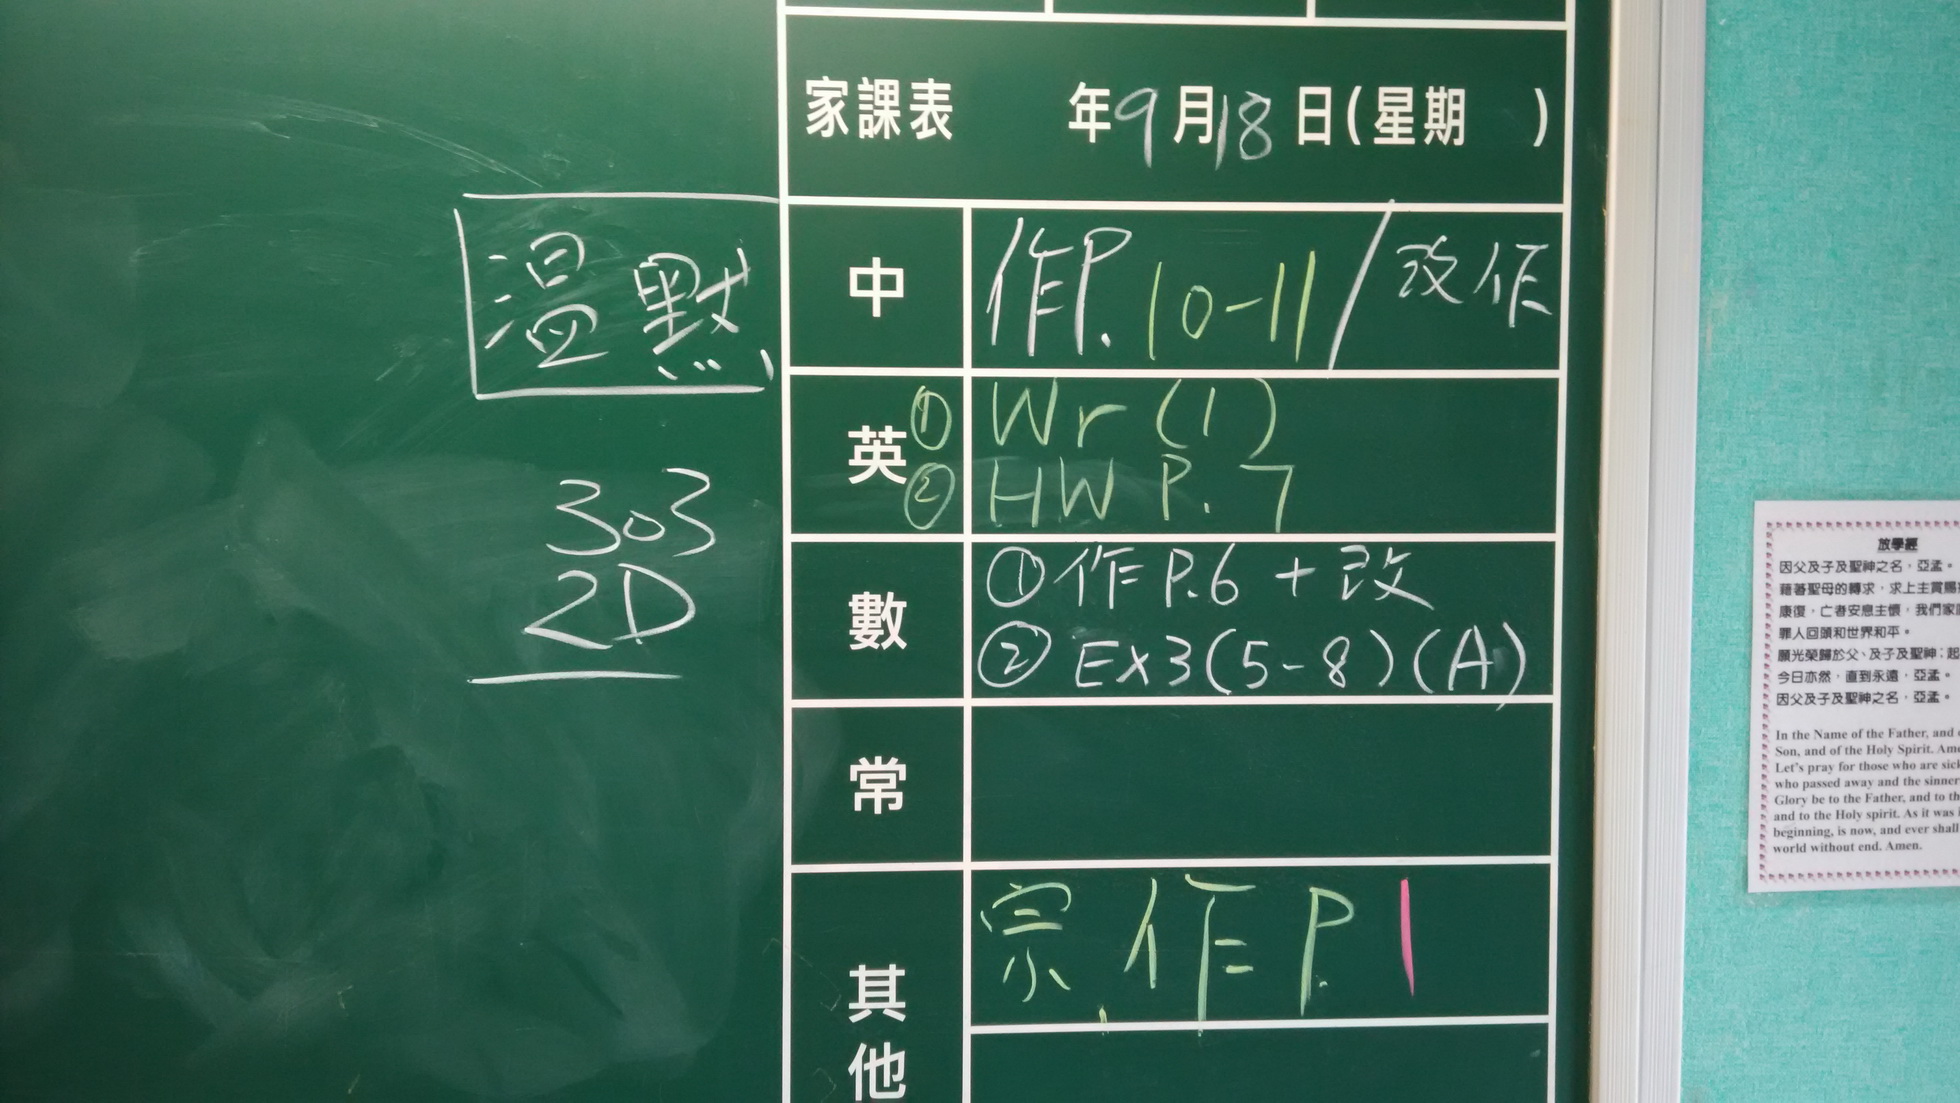 家課表 年9月18日(星期 )
溫默
中 作P.10-11/改作
英 ① Wr (1)
② HW P.7
303
2D
數 ①作P.6+改
② Ex3(5-8)(A)
常
其他 宗作P.1
放學經
因父及子及聖神之名，亞孟。
藉著聖母的轉求，求上主賞賜
康復，亡者安息主懷，我們家
罪人回頭和世界和平。
願光榮歸於父、及子及聖神；起
今日亦然，直到永遠，亞孟。
因父及子及聖神之名，亞孟。
In the Name of the Father, and
Son, and of the Holy Spirit. Ame
Let's pray for those who are sick
who passed away and the sinner
Glory be to the Father, and to th
and to the Holy spirit. As it was
beginning, is now, and ever shall
world without end. Amen.